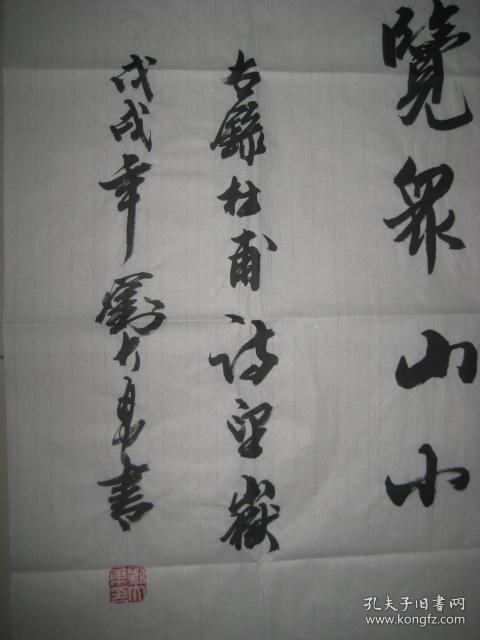 覽眾山小
右錄杜甫诗望嶽
戊戌年劉大為書
孔夫子旧书网
www.kongfz.com